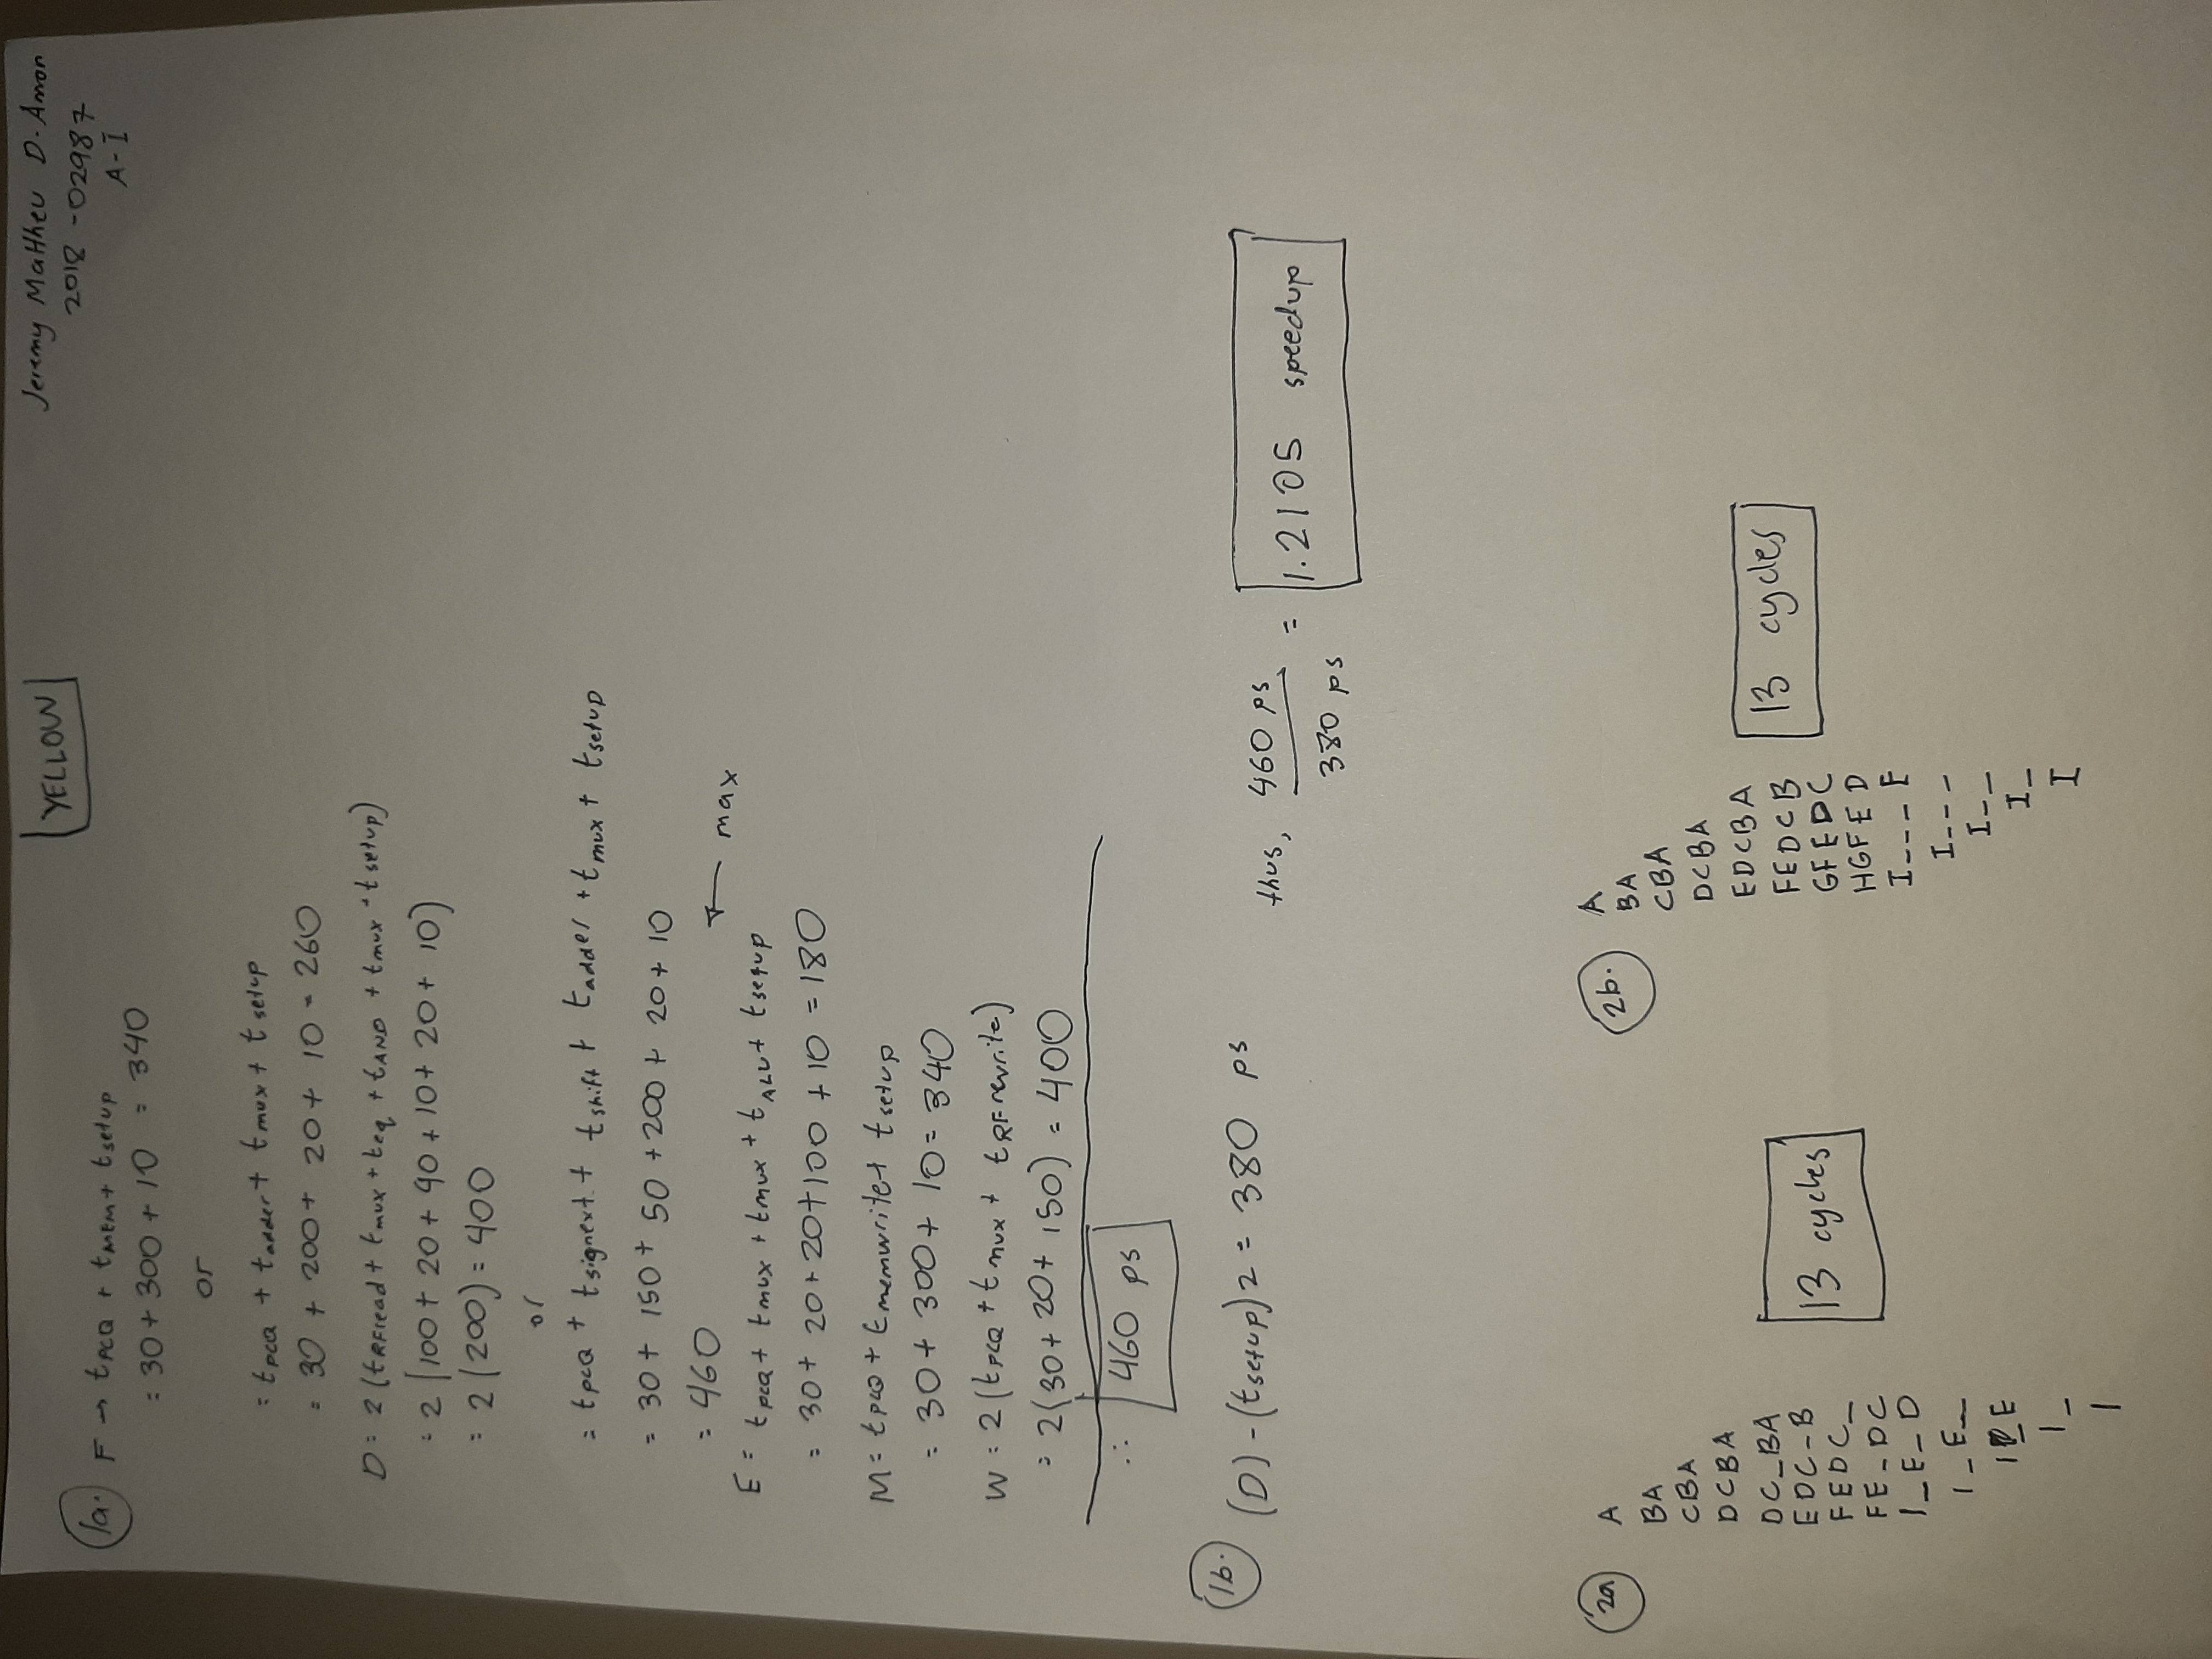 YELLOW
Jeremy Mattheu D. Amon
2018-02987
A-I
1a. F → tPCQ + tMEM + tsetup
= 30 + 300 + 10 = 340
or
= tPCQ + tadder + tmux + tsetup
= 30 + 200 + 20 + 10 = 260
D = 2 (tRFread + tmux + teq + tAND + tmux + tsetup)
= 2 (100 + 20 + 40 + 10 + 20 + 10)
= 2 (200) = 400
or
= tPCQ + tsignext. + tshift + tadder + tmux + tsetup
= 30 + 150 + 50 + 200 + 20 + 10
= 460 ← max
E = tPCQ + tmux + tmux + tALU + tsetup
= 30 + 20 + 20 + 100 + 10 = 180
M = tPCQ + tmemwrite + tsetup
= 30 + 300 + 10 = 340
W = 2 (tPCQ + tmux + tRFrewrite)
= 2 (30 + 20 + 150) = 400
∴ 460 ps
1b. (D) - (tsetup)2 = 380 ps
thus, 460 ps / 380 ps = 1.2105 speedup
2a
A
BA
CBA
DCBA
DC_BA
EDC_B
FEDC_
FE_DC
I_E_D
I_E_
I_E
I_
I
13 cycles
2b.
A
BA
CBA
DCBA
EDCBA
FEDCB
GFEDC
HGFED
I___E
I___
I__
I_
I
13 cycles